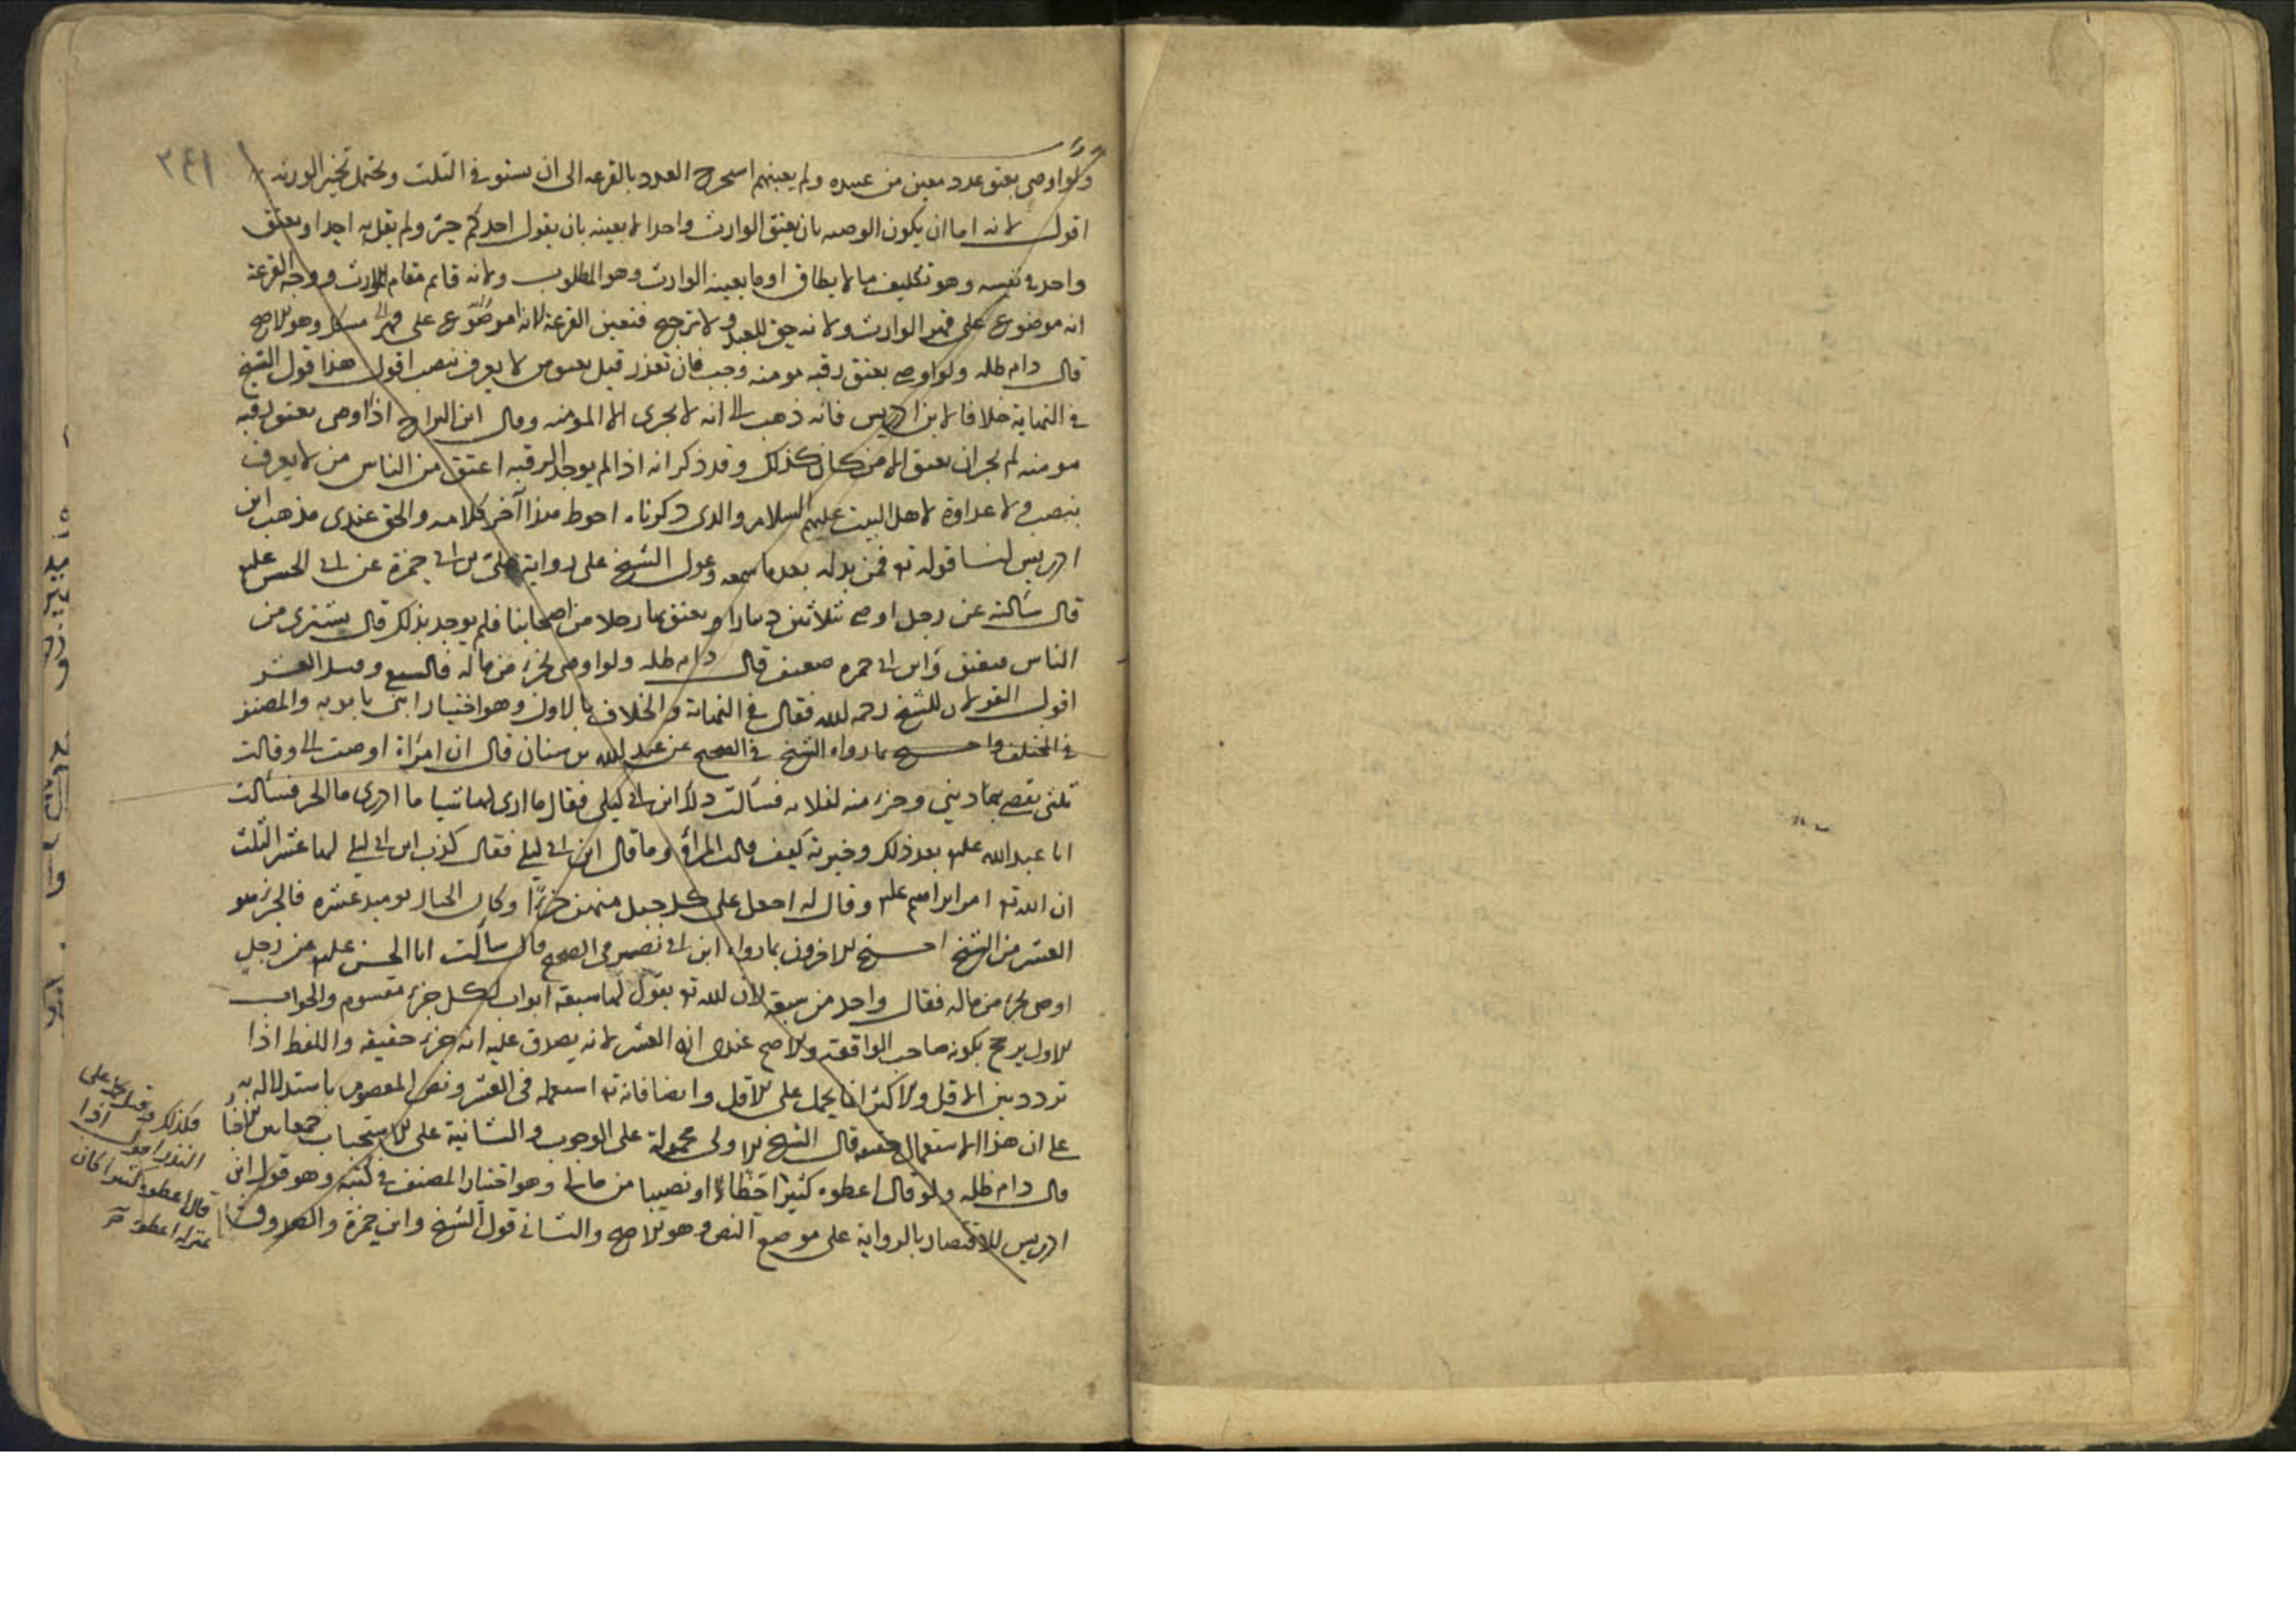 ولو اوصى بعتق عدد معين من عبيده ولم يعينهم استخرج العدد بالقرعه الى ان يستوفى الثلث ويحتمل تخير الورثه
٣٤١
اقول لانه اما ان يكون الوصيه بان يعتق الوارث واحدا لا بعينه بان يقول احدكم حر ولم يقل به احد او بعتق
واحد في نفسه وهو تكليف ما لا يطاق او ما يعينه الوارث وهو المطلوب ولانه قايم مقام المورث ووجه القرعة
انه موضوع على الوارث ولانه حق للعبد ولا ترجيح فتعين القرعة لانها موضوع على وهو الاصح
قال دام ظله ولو اوصى بعتق رقبه مومنه وجب فان تعذر قيل يعتق من لا يعرف بنصب اقول هذا قول الشيخ
في النهاية خلافا لابن ادريس فانه ذهب الى انه لا يجزى الا المومنه وقال ابن البراج اذا اوصى بعتق رقبه
مومنه لم يجز ان يعتق الا من كان كذلك وقد ذكر انه اذا لم يوجد الرقبه اعتق من الناس من لا يعرف
بنصب ولا عداوة لاهل البيت عليهم السلام والذى ذكرناه احوط هذا آخر كلامه والحق عندى مذهب ابن
ادريس لنا قوله تع فمن بدله بعد ما سمعه وعول الشيخ على رواية على بن ابي حمزة عن ابي الحسن علیه
قال سالته عن رجل اوصى بثلاثين دينارا يعتق بها رجلا من اصحابنا فلم يوجد بذلك قال يشترى من
الناس فيعتق وابن ابي حمزه ضعيف قال دام ظله ولو اوصى بجزء من ماله فالسبع وقيل العشر
اقول القولان للشيخ رحمه الله فقال في النهاية والخلاف بالاول وهو اختيار ابنى بابويه والمصنف
في المختلف واحتج بما رواه الشيخ في الصحيح عن عبد الله بن سنان قال ان امراة اوصت الى وقالت
ثلثى يقضى بها ديني وجزء منه لفلانه فسالت ذلك ابن ابي ليلى فقال ما ارى لها شيا ما ادرى ما الجزء فسالت
ابا عبد الله علیه بعد ذلك وخبرته كيف قالت المراة وما قال ابن ابي ليلى فقال كذب ابن ابي ليلى لها عشر الثلث
ان الله تع امر ابراهيم علیه وقال له اجعل على كل جبل منهن جزءا وكان الجبال يوميد عشره فالجزء هو
العشر من الشيخ احتج الاخرون بما رواه ابن ابي نصر في الصحيح قال سالت ابا الحسن علیه عن رجل
اوصى بجزء من ماله فقال واحد من سبعة لان الله تع يقول لها سبعة ابواب لكل جزء مقسوم والجواب
الاول يرجح بكونه صاحب الواقعة والاصح عندى انه العشر لانه يصدق عليه انه جزء حقيقه واللفظ اذا
تردد بين الاقل والاكثر انما يحمل على الاقل وايضا فانه تع استعمله في العشر ونص المعصوم باستدلاله به
على ان هذا الاستعمال حقيقه قال الشيخ الاولى محمولة على الوجوب والثانية على الاستحباب جمعا بين الاخبار
قال دام ظله ولو قال اعطوه كثيرا وهو اختيار المصنف في كتبه وهو قول ابن
ادريس للاقتصار بالرواية على موضع النص وهو الاصح والثانى قول الشيخ وابن حمزة والصدوق
فكذلك وقيل يحمل على
النذر اقول اذا
قال اعطوه كثيرا كان
بمنزله اعطوه